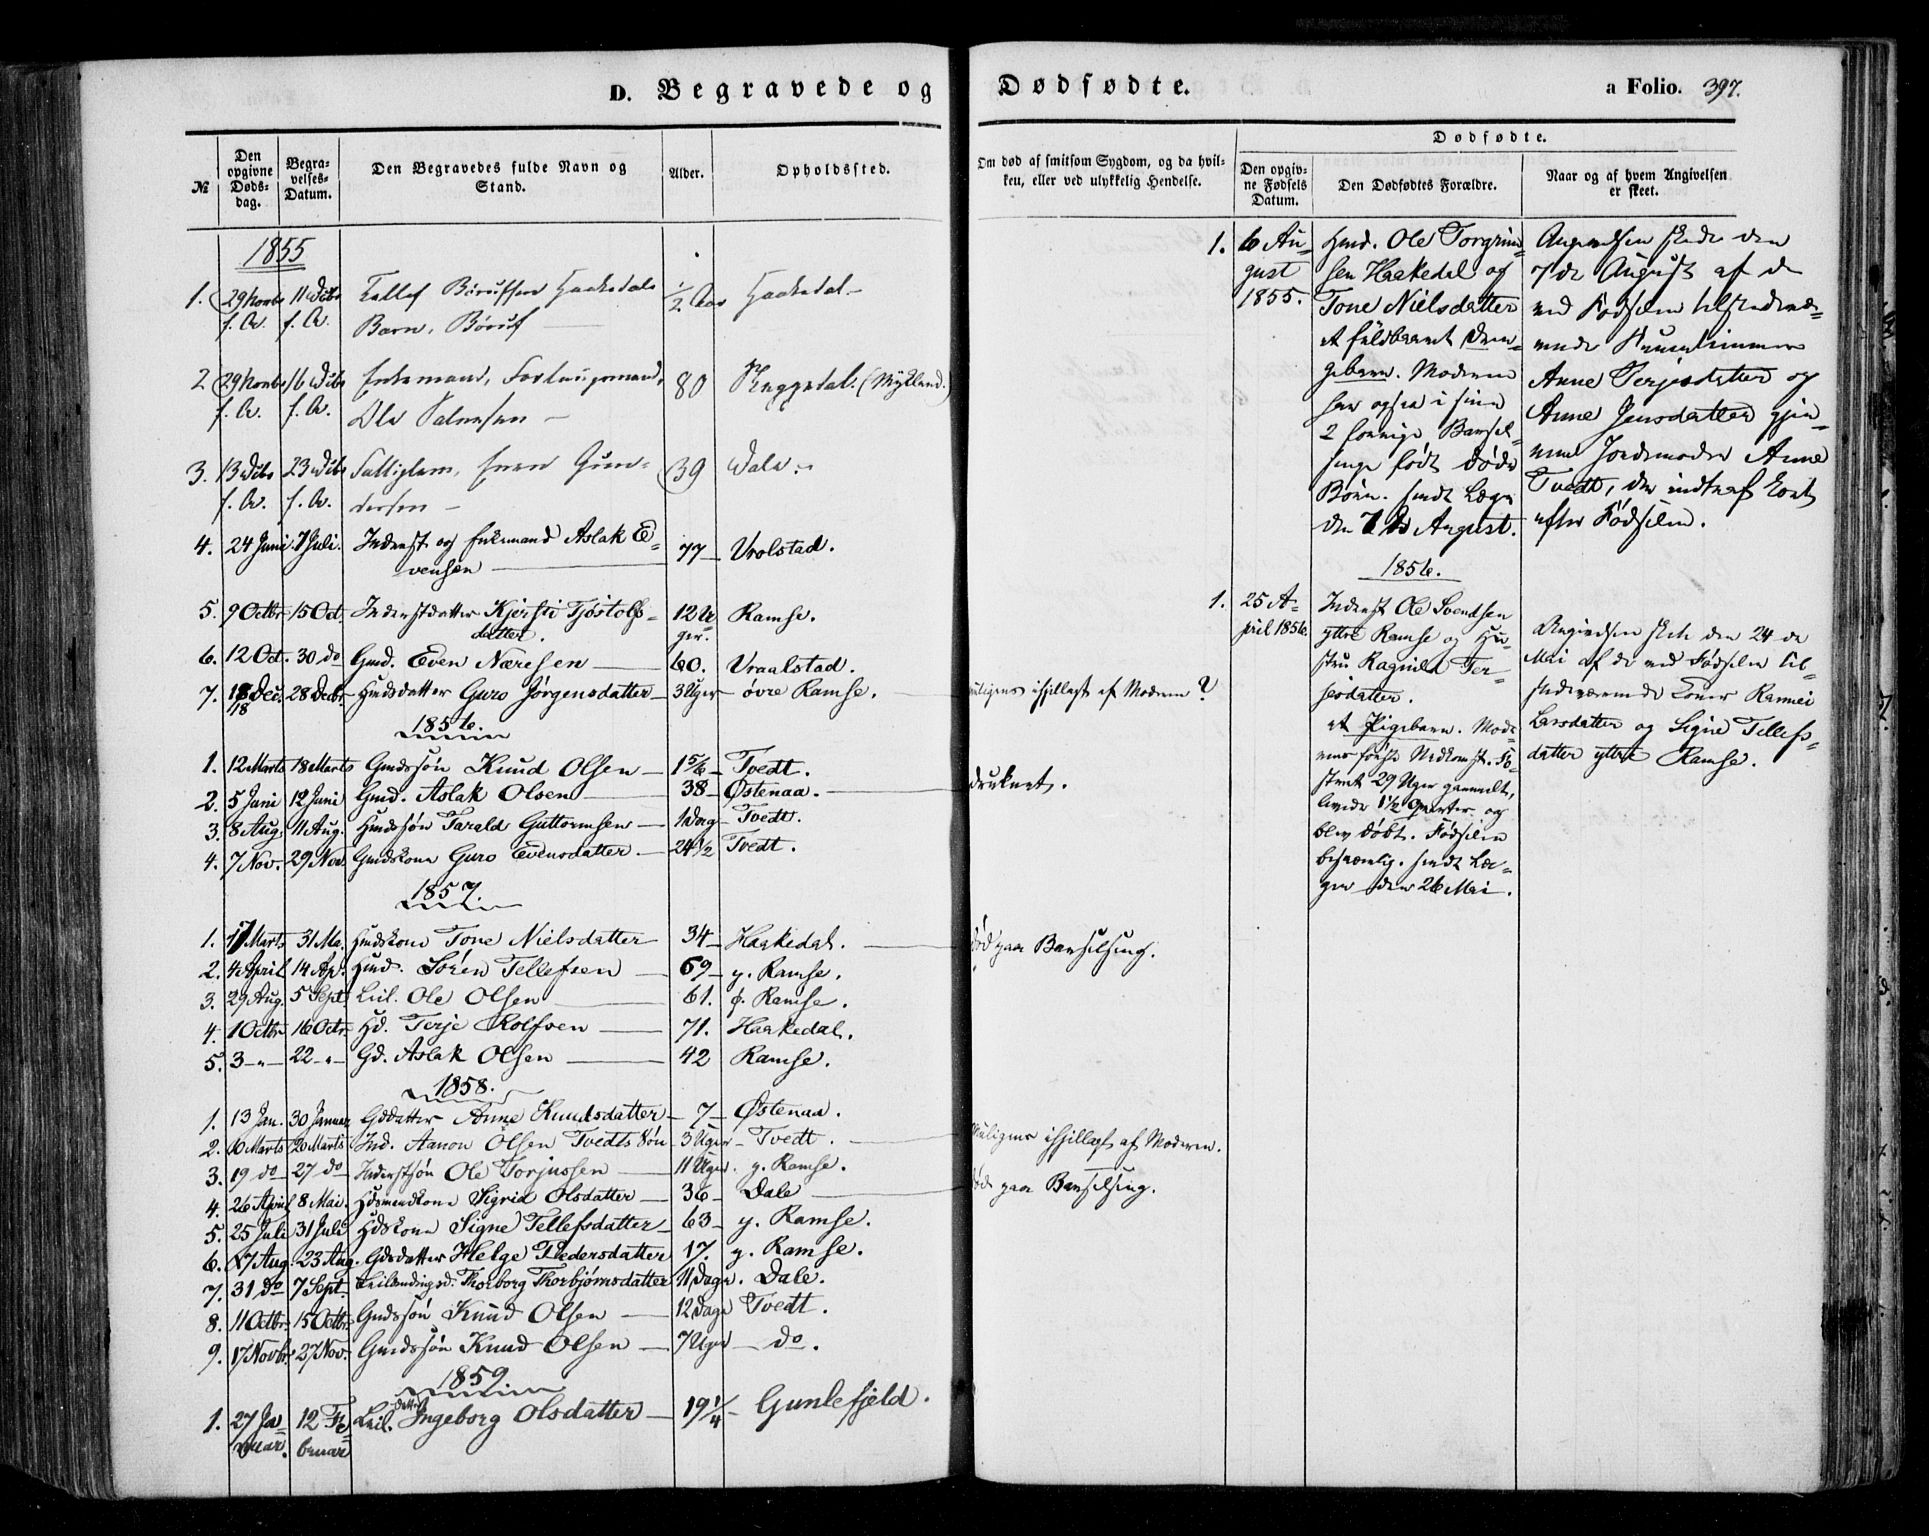 D. Begravede og Dødfødte. a Folio. 397.
№
Den opgivne Døds-dag.
Begra-velses-Datum.
Den Begravedes fulde Navn og Stand.
Alder.
Opholdssted.
Om død af smitsom Sygdom, og da hvil-ken, eller ved ulykkelig Hendelse.
Dødfødte.
Den opgiv-ne Fødsels Datum.
Den Dødfødtes Forældre.
Naar og af hvem Angivelsen er skeet.
1855
1. 29 Novbr 11 Dcbr Tellef Haakedals ½ Aar Haakedal
f. A. f. A. Barn,
2 29 Novbr 16 Dcbr Enkemand, 80 (Mykland.)
f. A. f. A. Ole
3. 13 Dcbr 23 Dcbr Even Gun- 39 Dale
f. A. f. A. dersen
4. 24 Juni 7 Juli. Inderst og Enkemand Aslak E- 77 Vrolstad.
vensen
5. 9 Octbr 15 Oct. Inderstdatter Kjersti Tjøstolfs- 12 U- Ramse.
datter. ger.
6. 12 Oct. 30 do Gmd. Even Næresen 60. Vraalstad.
7. 18 Dec. 28 Decbr Hmdsdatter Guro Jørgensdatter 3 Uger øvre Ramse. muligens ihjellagt af Moderen?
18
1856.
1. 12 Marts 18 Marts Gmdssøn Knud Olsen 1 5/6 Tvedt.
2. 5 Juni 12 Juni Gmd. Aslak Olsen 38 Østenaa. druknet.
3. 8 Aug. 11 Aug. Hmdssøn Tarald Guttormsen 1 Dag Tvedt.
4. 7 Nov. 29 Nov. Gmdskone Guro Evensdatter 24½ Tvedt.
1857.
1. 17 Marts 31 Ma. Hmdskone Tone Nielsdatter 34 Haakedal. død paa Barselseng.
2. 4 April 14 Ap. Hmd. Søren Tellefsen 69 y. Ramse.
3. 29 Aug. 5 Sept Leil. Ole Olsen 61. ø. Ramse.
4. 1 Octbr 16 Octr Hd. Terje Rolfsen 71. Haakedal.
5. 3 -"- 22 -"- Gd. Aslak Olsen 42 Ramse.
1858.
1. 13 Jan. 30 Januar Gddatter Anne Knudsdatter 7 Østenaa.
2. 6 Marts 20 Marts Ind. Aanon Olsen Tvedts Søn 3 Uger Tvedt. Muligens ihjellagt af Moderen.
3. 19 do 27 do Inderstsøn Ole Torjussen 11 Uger. y. Ramse.
4. 26 April 8 Mai. Hdsmandskone Sigrid Olsdatter 36 Dale død paa Barselseng.
5. 25 Juli 31 Juli Hdskone Signe Tellefsdatter 63 y. Ramse.
6. 17 Aug. 23 Aug. Gdsdatter Helge Pedersdatter 17. y. Ramse.
7. 31 do 7 Sept. Leilændingsd. Thorborg Thorbjørnsdatter 11 Dage. Dale.
8. 11 Octbr. 15 Octbr. Gmdssøn Knud Olsen 12 Dage Tvedt.
9. 17 Novbr. 27 Nov. Gmdssøn Knud Olsen 7 Uger do.
1859
1. 27 Ja- 12 Fe- Leil. Datter Ingeborg Olsdatter 19¼ Gunlefjeld.
nuar. bruar
1. 6 Au-
gust
1855.
Hmd. Ole Torgrim-
sen Haakedal og
Tone Nielsdatter
et fuldbaaret Dren-
gebarn. Moderen
har ogsaa i sine
2 forrige Barsel-
senge født døde
Børn. sendt Lægen
den 7 de August.
Angivelsen skede den
7de August af de
ved Fødselen tilstedevæ-
rende Fruentimmer
Anne Terjesdatter og
Anne Jensdatter gjen-
nem Jordemoder Anne
Tvedt, der indtraf kort
efter Fødselen.
1856.
1. 25 A-
pril 1856.
Inderst Ole Svendsen
yttre Ramse og Hu-
stru Ragnild Ter-
jesdatter.
et Pigebarn. Mode-
rens første Nedkomst. Fo-
steret 29 Uger gammelt,
levede 1½ Qvarter og
blev døbt. Fødselen
besværlig. sendt Læ-
gen den 26 Mai.
Angivelsen skete den 24 de
Mai af de ved Fødselen til-
stedeværende Koner Rannei
Larsdatter og Signe Tellefs-
datter yttre Ramse.